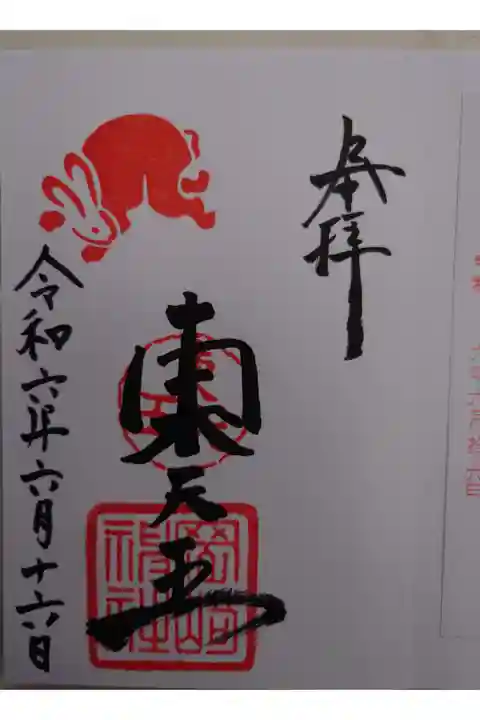 奉拝
東天王
岡﨑神社
令和六年六月十六日